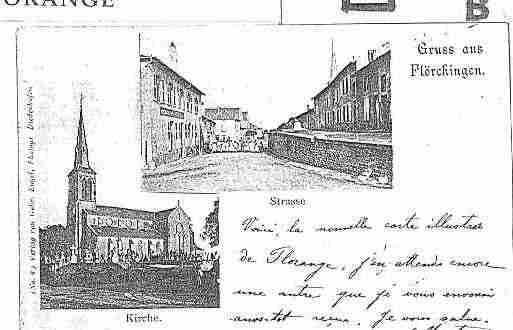 ORANGE
B
Gruss aus
Flörchingen.
Strasse
Kirche.
Voici, la nouvelle carte illustrée
de Florange, j'en attends encore
une autre que je vous enverrai
aussitôt reçue. Je vous salue.